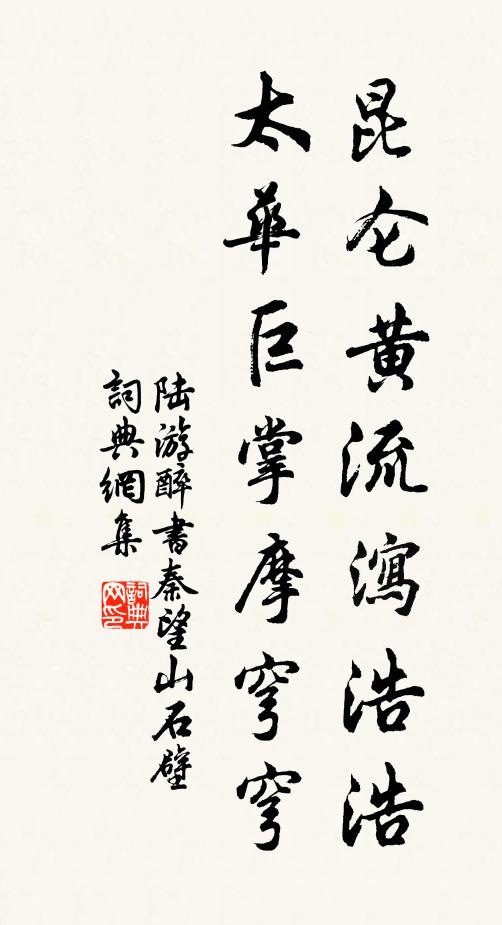 昆仑黄流瀉浩浩
太華巨掌摩穹穹
陆游醉書秦望山石壁
詞典網集
詞典网印